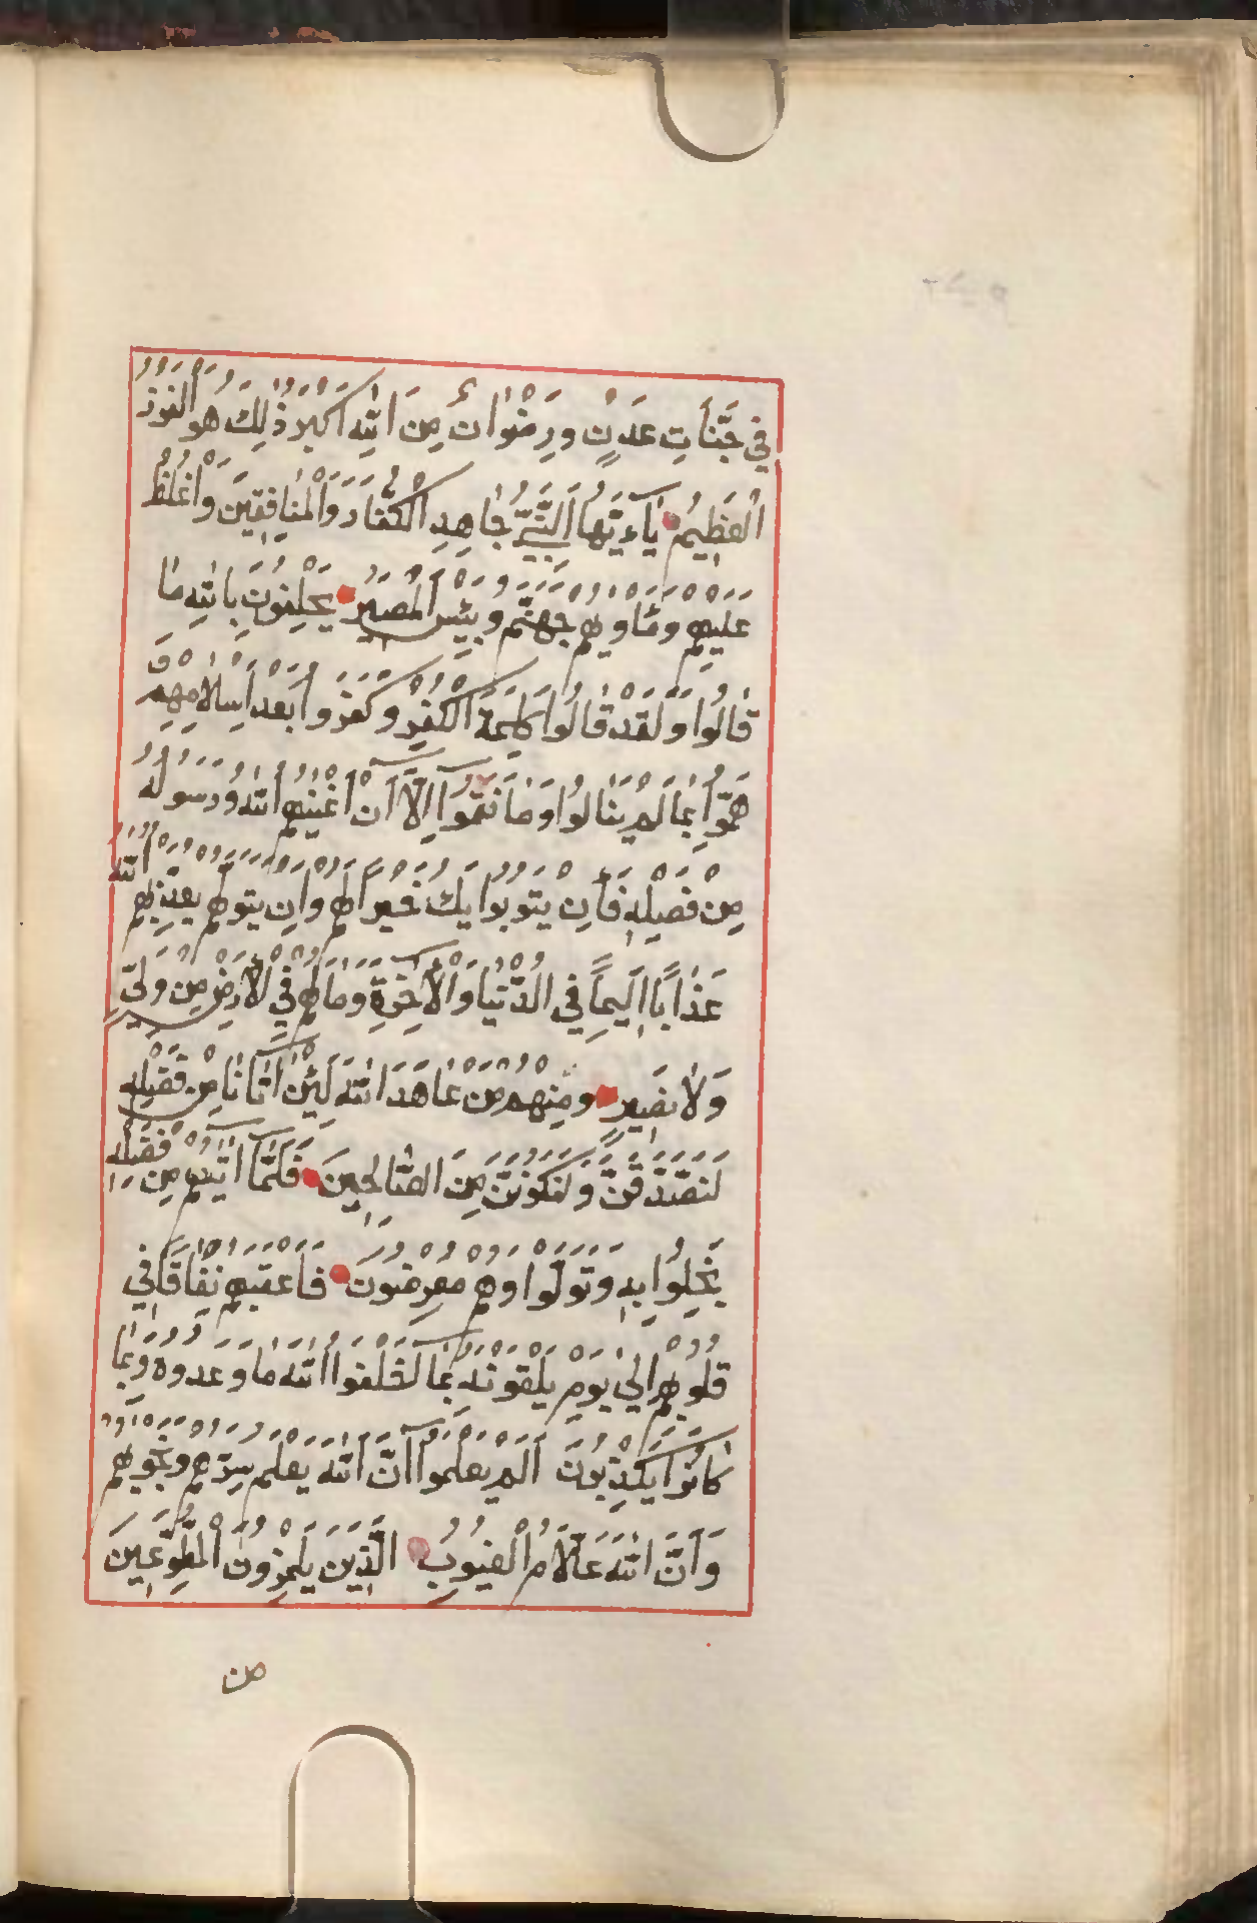 في جَنَّاتِ عَدْنٍ وَرِضْوَانٌ مِنَ اللّٰهِ اَكْبَرُ ذٰلِكَ هُوَ الْفَوْزُ
الْعَظِيمُ يَآءَيُّهَا النَّبِيُّ جَاهِدِ الْكُفَّارَ وَالْمُنَافِقِينَ وَاغْلُظْ
عَلَيْهِمْ وَمَأْوٰيهُمْ جَهَنَّمُ وَبِئْسَ الْمَصِيرُ يَحْلِفُونَ بِاللّٰهِ مَا
قَالُوا وَلَقَدْ قَالُوا كَلِمَةَ الْكُفْرِ وَكَفَرُوا بَعْدَ اِسْلَامِهِمْ وَ
هَمُّوا بِمَا لَمْ يَنَالُوا وَمَا نَقَمُوٓا اِلَّآ اَنْ اَغْنٰيهُمُ اللّٰهُ وَرَسُولُهُ
مِنْ فَضْلِهِ فَاِنْ يَتُوبُوا يَكُ خَيْرًا لَهُمْ وَاِنْ يَتَوَلَّوْا يُعَذِّبْهُمُ اللّٰهُ
عَذَابًا اَلِيمًا فِي الدُّنْيَا وَالْاٰخِرَةِ وَمَا لَهُمْ فِي الْاَرْضِ مِنْ وَلِيٍّ
وَلَا نَصِيرٍ وَمِنْهُمْ مَنْ عَاهَدَ اللّٰهَ لَئِنْ اٰتَانَا مِنْ فَضْلِهِ
لَنَصَّدَّقَنَّ وَلَنَكُونَنَّ مِنَ الصَّالِحِينَ فَلَمَّآ اٰتٰيهُمْ مِنْ فَضْلِهِ
بَخِلُوا بِهِ وَتَوَلَّوْا وَهُمْ مُعْرِضُونَ فَاَعْقَبَهُمْ نِفَاقًا فِي
قُلُوبِهِمْ اِلٰي يَوْمِ يَلْقَوْنَهُ بِمَآ اَخْلَفُوا اللّٰهَ مَا وَعَدُوهُ وَبِمَا
كَانُوا يَكْذِبُونَ اَلَمْ يَعْلَمُوٓا اَنَّ اللّٰهَ يَعْلَمُ سِرَّهُمْ وَنَجْوٰيهُمْ
وَاَنَّ اللّٰهَ عَلَّامُ الْغُيُوبِ الَّذِينَ يَلْمِزُونَ الْمُطَّوِّعِينَ
من